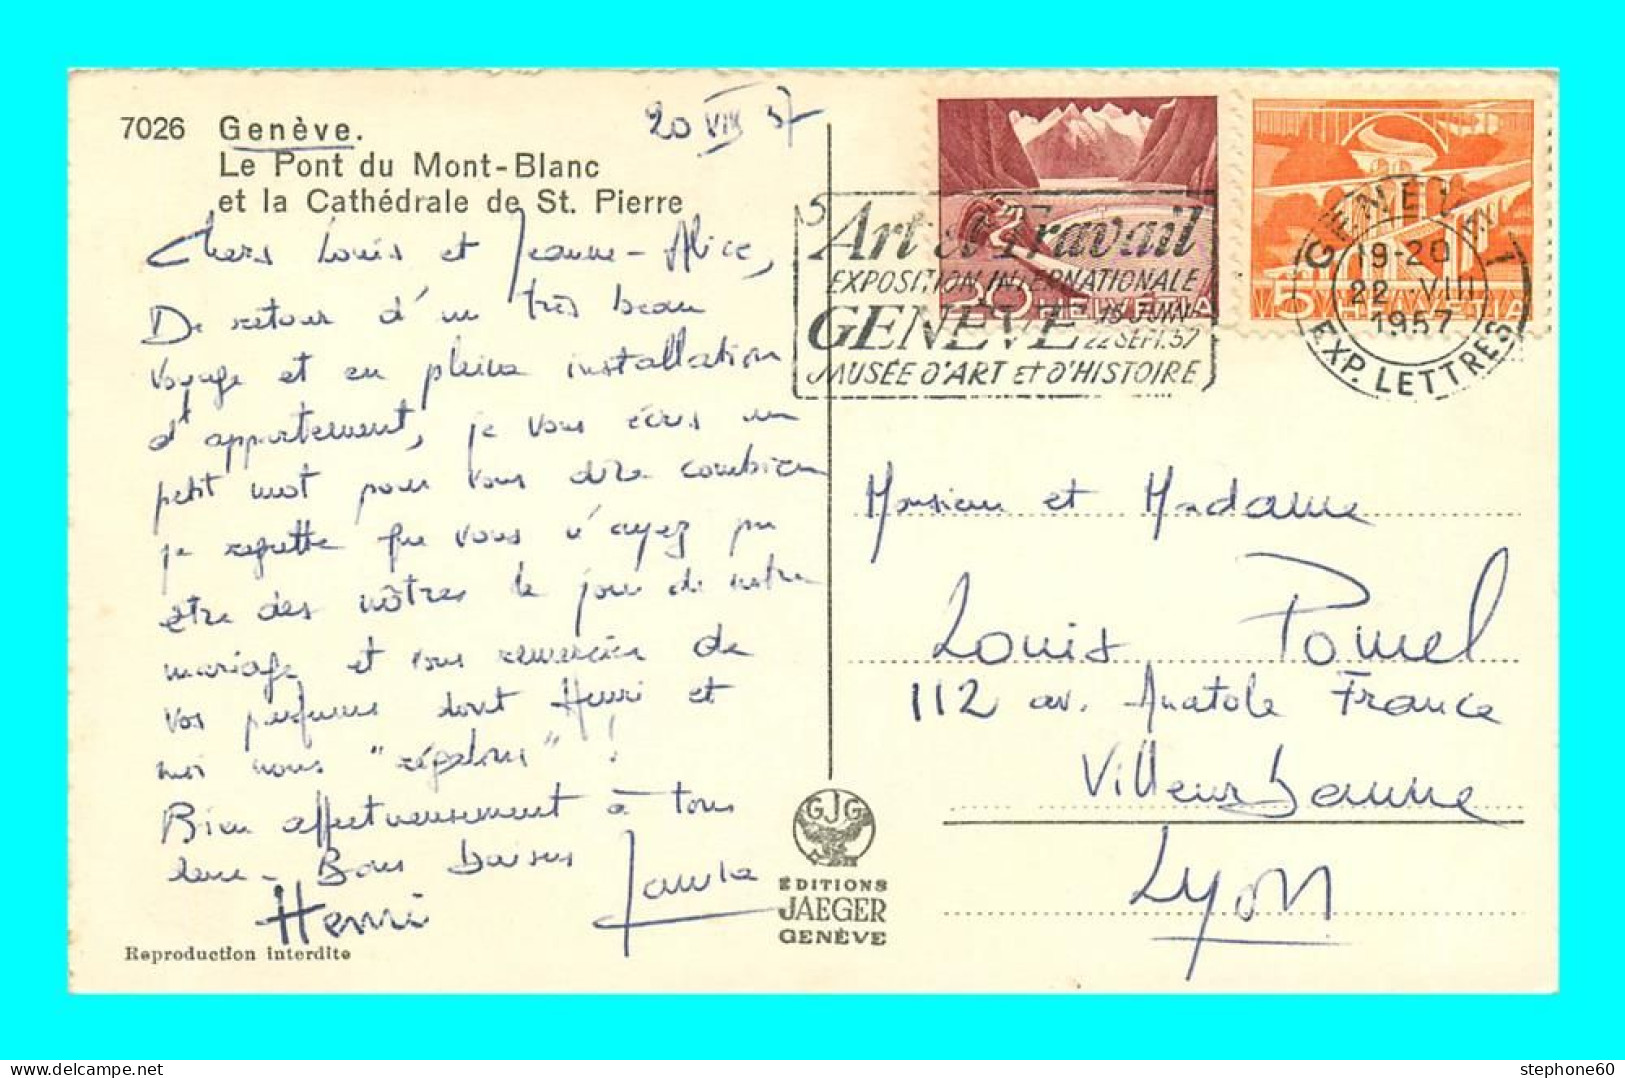 7026 Genève.
Le Pont du Mont-Blanc
et la Cathédrale de St. Pierre
20 VIII 57
Chers Louis et Jeanne-Alice,
De retour d'un très beau
voyage et en pleine installation
d'appartement, je vous écris un
petit mot pour vous dire combien
je regrette que vous n'ayez pu
être des nôtres le jour de notre
mariage et vous remercier de
vos parfums dont Henri et
moi nous "régalons" !
Bien affectueusement à tous
deux - Bons baisers
Henri
Reproduction interdite
Art et Travail
EXPOSITION INTERNATIONALE
GENÈVE 15 JUIN
22 SEPT. 57
MUSÉE D'ART ET D'HISTOIRE
20 HELVETIA
5 HELVETIA
GENÈVE 1
19-20
22 VIII
1957
EXP. LETTRES
Monsieur et Madame
Louis Pomel
112 av. Anatole France
Villeurbanne
Lyon
GJG
ÉDITIONS
JAEGER
GENÈVE
stephone60